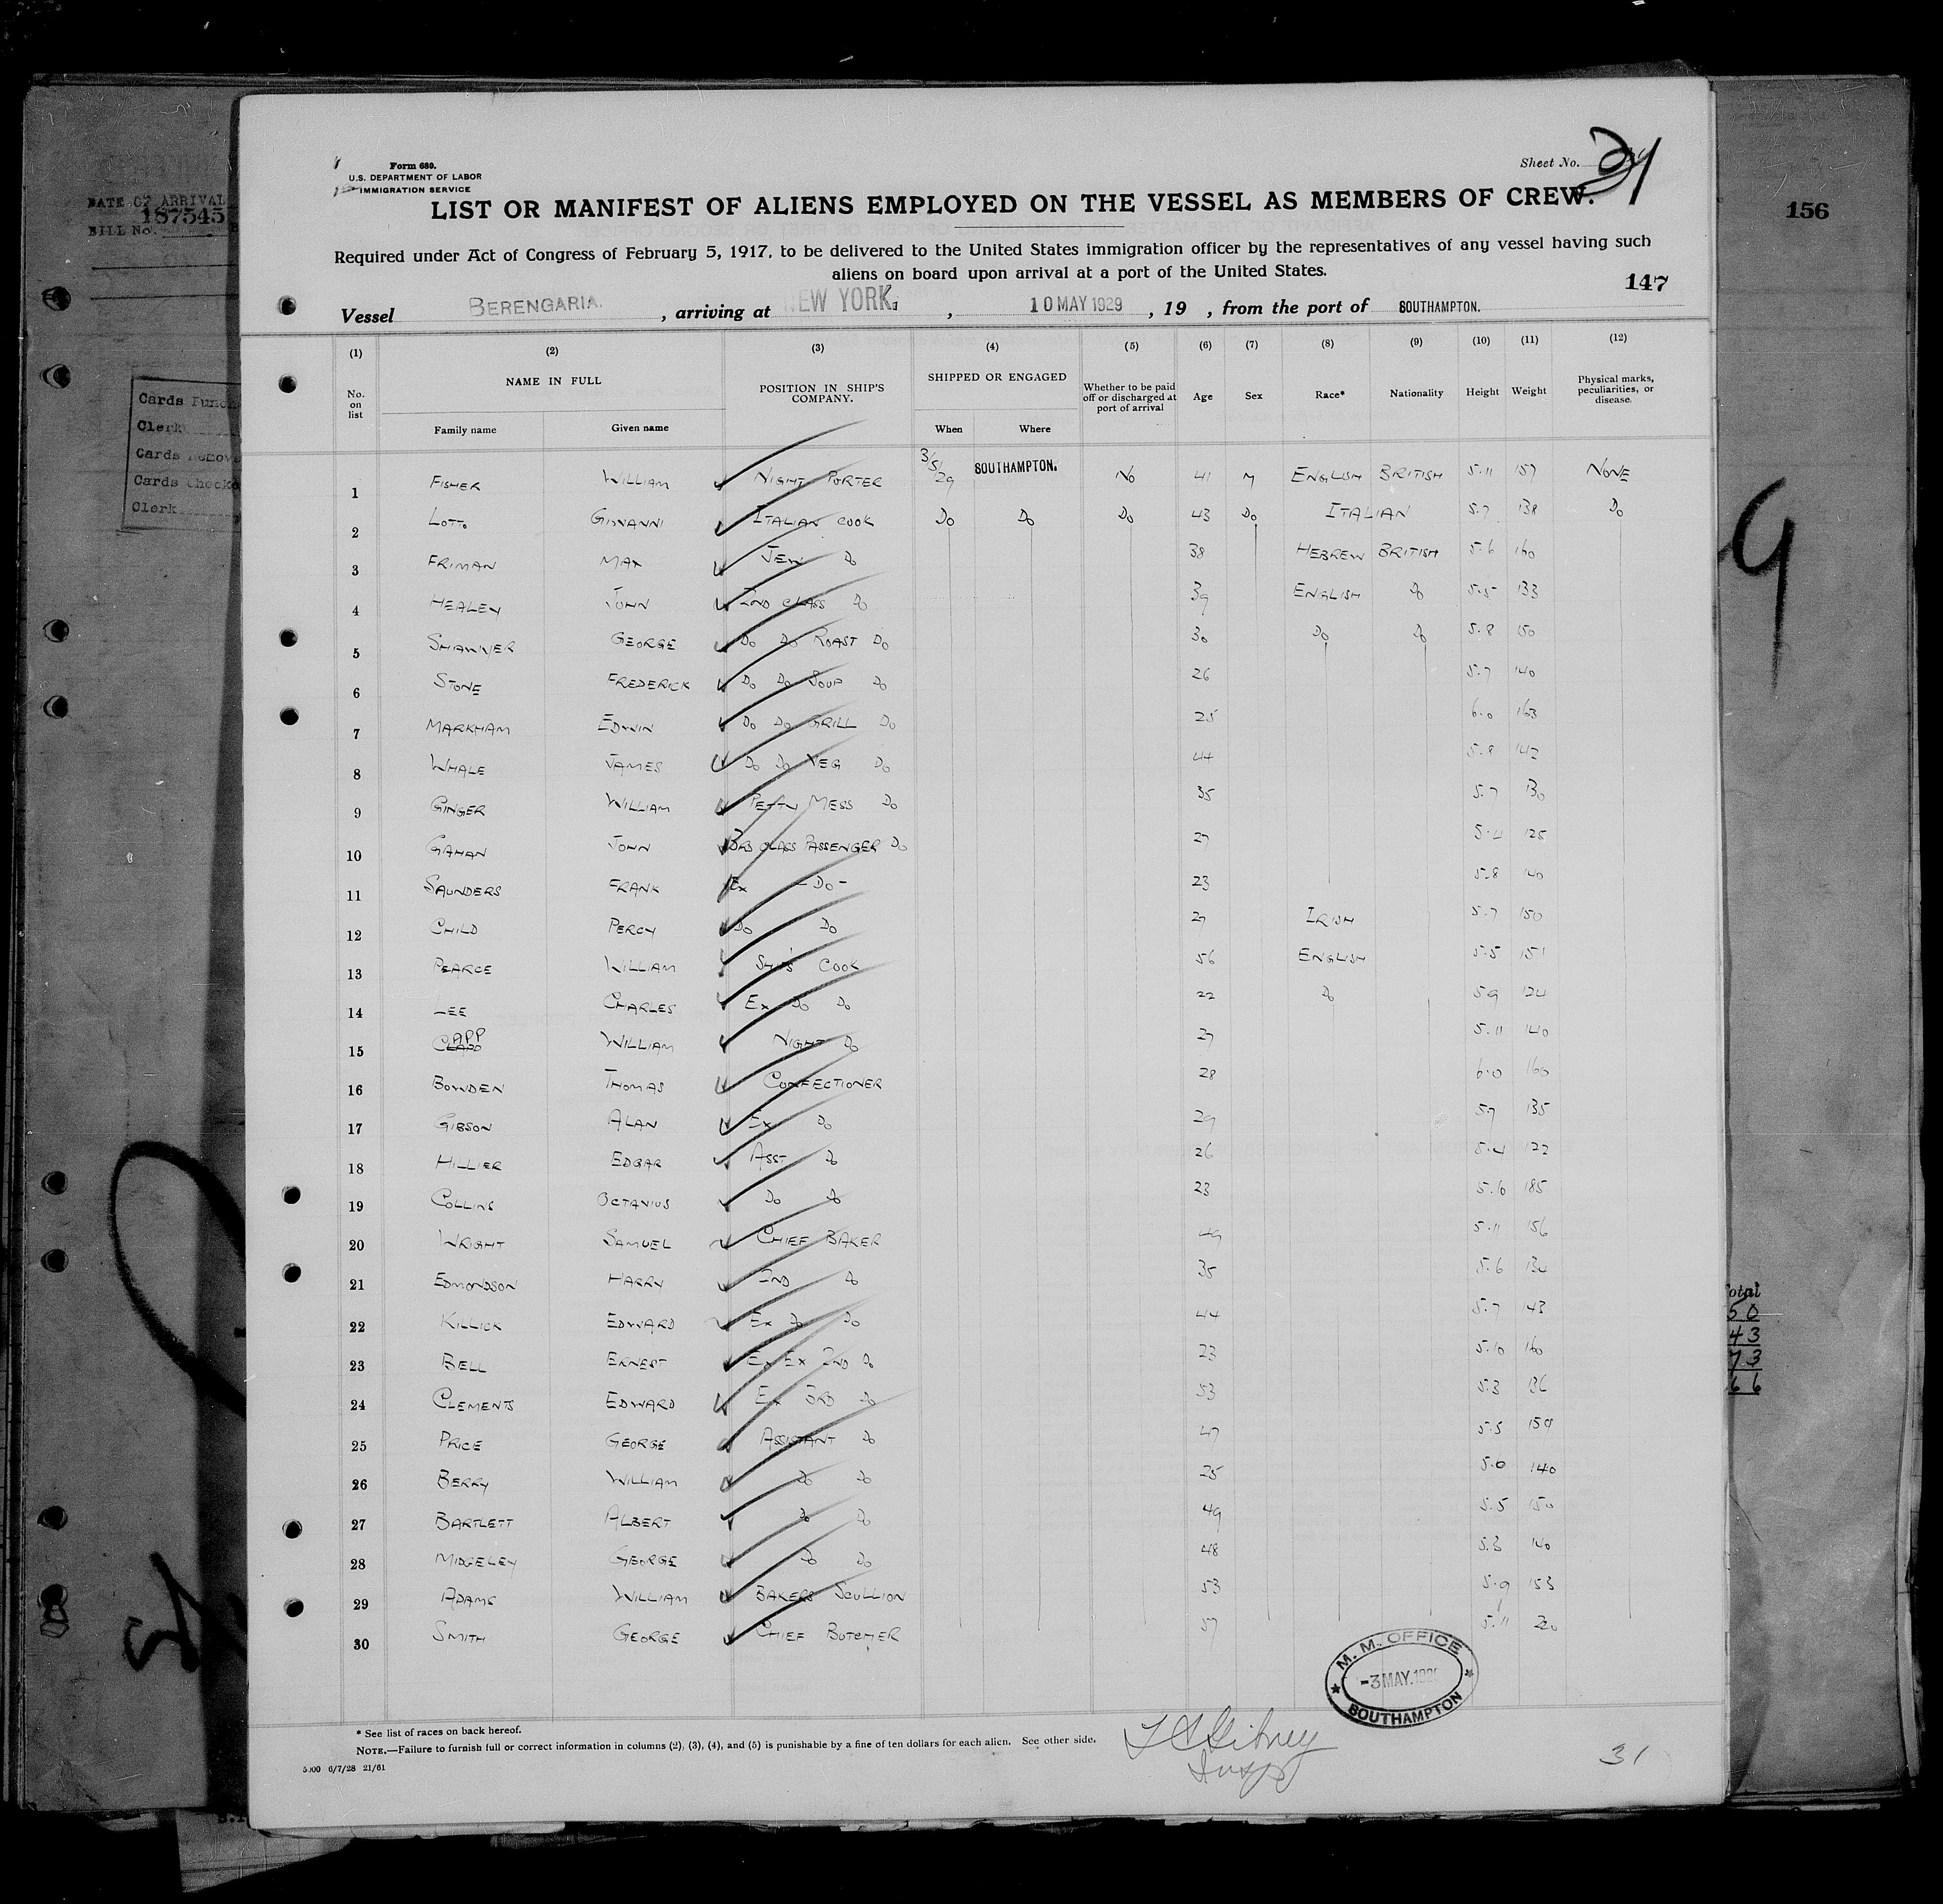 DATE OF ARRIVAL
187545
BILL No.
Cards Punch
Clerk
Cards Remove
Cards Checke
Clerk
156
Form 680.
U.S. DEPARTMENT OF LABOR
IMMIGRATION SERVICE
Sheet No. 31
LIST OR MANIFEST OF ALIENS EMPLOYED ON THE VESSEL AS MEMBERS OF CREW.
Required under Act of Congress of February 5, 1917, to be delivered to the United States immigration officer by the representatives of any vessel having such
aliens on board upon arrival at a port of the United States.
147
Vessel BERENGARIA. , arriving at NEW YORK. , 10 MAY 1929 , 19 , from the port of SOUTHAMPTON.
(1) (2) (3) (4) (5) (6) (7) (8) (9) (10) (11) (12)
No. on list NAME IN FULL POSITION IN SHIP'S COMPANY. SHIPPED OR ENGAGED Whether to be paid off or discharged at port of arrival Age Sex Race* Nationality Height Weight Physical marks, peculiarities, or disease.
Family name Given name When Where
1 FISHER WILLIAM NIGHT PORTER 3/5/29 SOUTHAMPTON. No 41 M ENGLISH BRITISH 5.11 157 NONE
2 LOTTO GIOVANNI ITALIAN COOK Do Do Do 43 Do ITALIAN 5.7 138 Do
3 FRIMAN MAX JEW Do 38 HEBREW BRITISH 5.6 160
4 HEALEY JOHN 2ND CLASS Do 39 ENGLISH Do 5.5 133
5 SHAWNER GEORGE Do Do ROAST Do 30 Do Do 5.8 150
6 STONE FREDERICK Do Do SOUP Do 26 5.7 140
7 MARKHAM EDWIN Do Do GRILL Do 25 6.0 163
8 WHALE JAMES Do Do VEG Do 44 5.8 142
9 GINGER WILLIAM PETTY MESS Do 35 5.7 130
10 GAHAN JOHN 3RD CLASS PASSENGER Do 27 5.4 125
11 SAUNDERS FRANK Ex - Do - 23 5.8 140
12 CHILD PERCY Do Do 27 IRISH 5.7 150
13 PEARCE WILLIAM SHIPS COOK 56 ENGLISH 5.5 151
14 LEE CHARLES Ex Do Do 22 Do 5.9 124
15 CLAPP WILLIAM NIGHT Do 27 5.11 140
16 BOWDEN THOMAS CONFECTIONER 28 6.0 160
17 GIBSON ALAN Ex Do 29 5.7 135
18 HILLIER EDGAR ASST Do 26 5.4 122
19 COLLINS OCTAVIUS Do Do 23 5.6 185
20 WRIGHT SAMUEL CHIEF BAKER 49 5.11 156
21 EDMONDSON HARRY 2ND Do 35 5.6 134
22 KILLICK EDWARD Ex Do Do 44 5.7 143
23 BELL ERNEST Ex Ex 2ND Do 23 5.10 140
24 CLEMENTS EDWARD Ex 3RD Do 53 5.3 136
25 PRICE GEORGE ASSISTANT Do 47 5.5 159
26 BERRY WILLIAM Do Do 25 5.6 140
27 BARTLETT ALBERT Do Do 49 5.5 150
28 MIDGELEY GEORGE Do Do 48 5.3 140
29 ADAMS WILLIAM BAKERS SCULLION 53 5.9 153
30 SMITH GEORGE CHIEF BUTCHER 57 5.11 220
Total
50
43
73
66
M. M. OFFICE
-3 MAY. 192
SOUTHAMPTON
* See list of races on back hereof.
NOTE.—Failure to furnish full or correct information in columns (2), (3), (4), and (5) is punishable by a fine of ten dollars for each alien. See other side.
5000 6/7/28 21/61
31